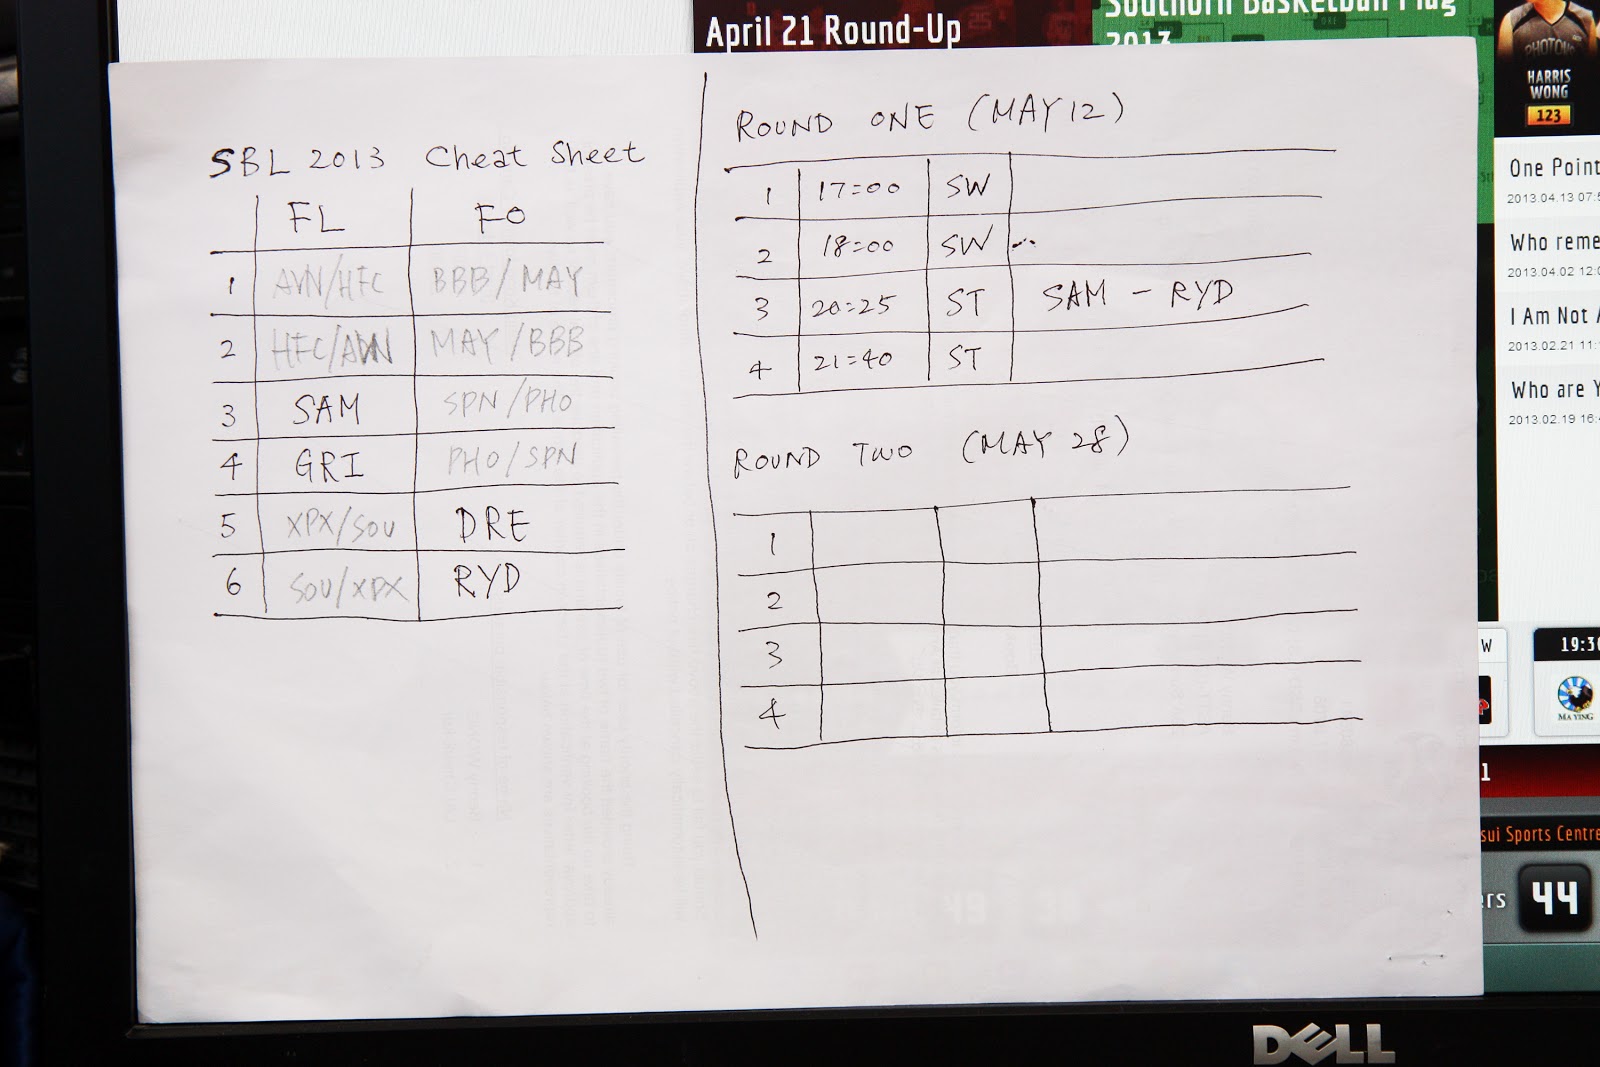 SBL 2013 Cheat Sheet
FL FO
1 AVN/HFC BBB/MAY
2 HFC/AVN MAY/BBB
3 SAM SPN/PHO
4 GRI PHO/SPN
5 XPX/SOU DRE
6 SOU/XPX RYD
ROUND ONE (MAY 12)
1 17:00 SW
2 18:00 SW ...
3 20:25 ST SAM - RYD
4 21:40 ST
ROUND TWO (MAY 28)
1
2
3
4
April 21 Round-Up
Southorn Basketball Plug
2013
PHOTON
HARRIS
WONG
123
One Point
2013.04.13 07:5
Who reme
2013.04.02 12:0
I Am Not
2013.02.21 11:
Who are Y
2013.02.19 16:
W
19:30
MA YING
1
sui Sports Centre
ers 44
DELL